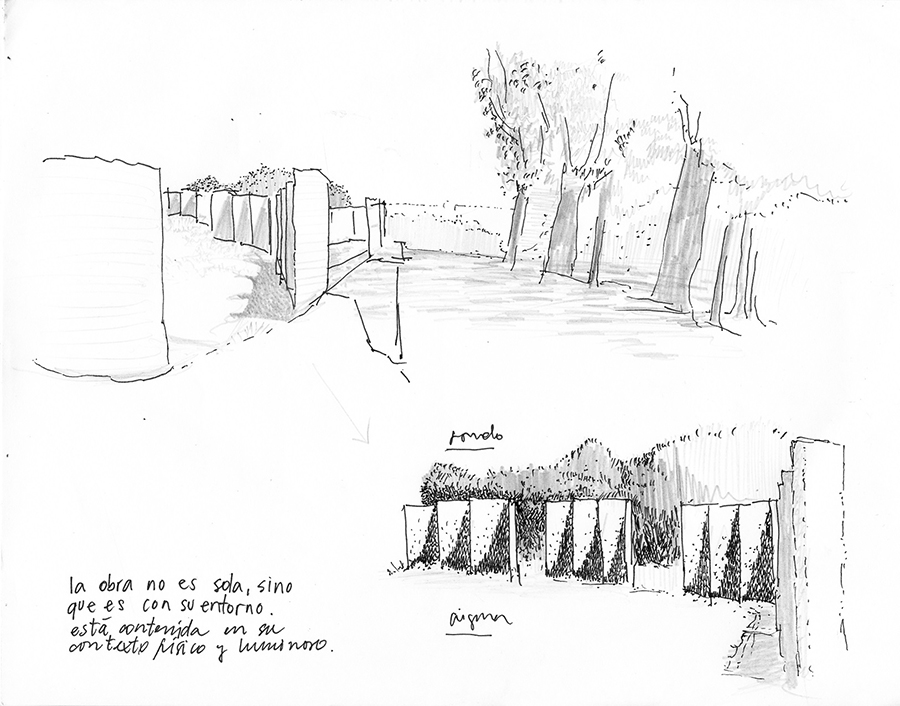 fondo
figura
la obra no es sola, sino
que es con su entorno.
está contenida en su
contexto físico y luminoso.